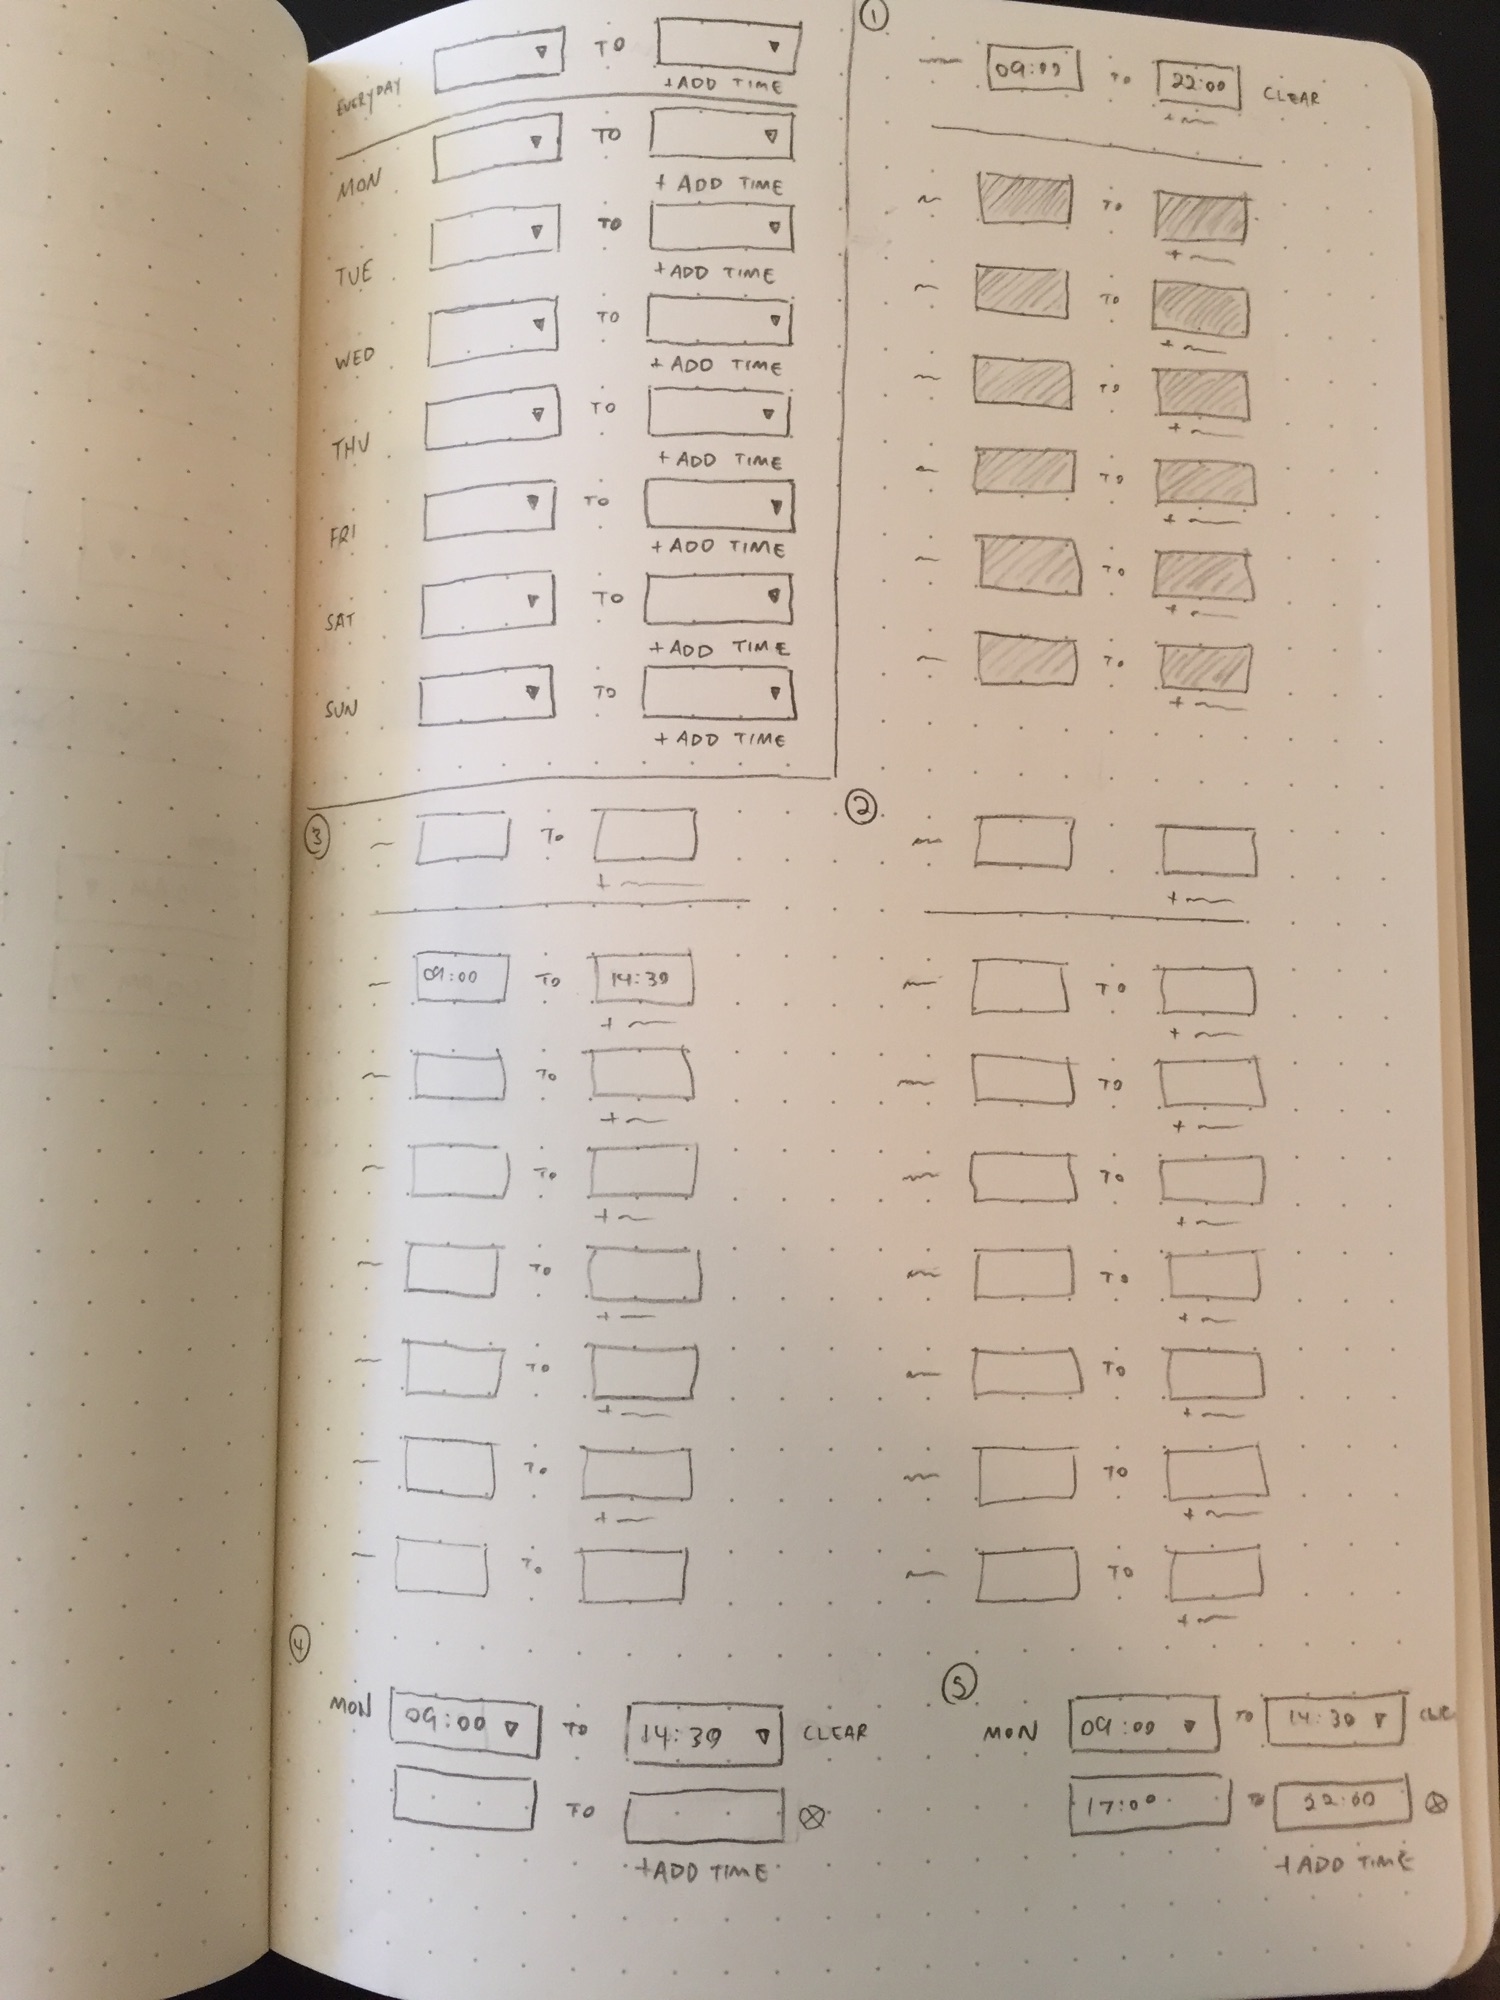 EVERYDAY TO
+ADD TIME
MON TO
+ ADD TIME
TUE TO
+ADD TIME
WED TO
+ ADD TIME
THU TO
+ ADD TIME
FRI TO
+ ADD TIME
SAT TO
+ ADD TIME
SUN TO
+ ADD TIME
1
09:00 TO 22:00 CLEAR
+
TO
+
TO
+
TO
+
TO
+
TO
+
TO
+
2
+
TO
+
TO
+
TO
+
TO
+
TO
+
TO
+
TO
+
3
TO
+
09:00 TO 14:30
+
TO
+
TO
+
TO
+
TO
+
TO
+
TO
4
MON 09:00 TO 14:30 CLEAR
TO
+ADD TIME
5
MON 09:00 TO 14:30
17:00 TO 22:00
+ADD TIME